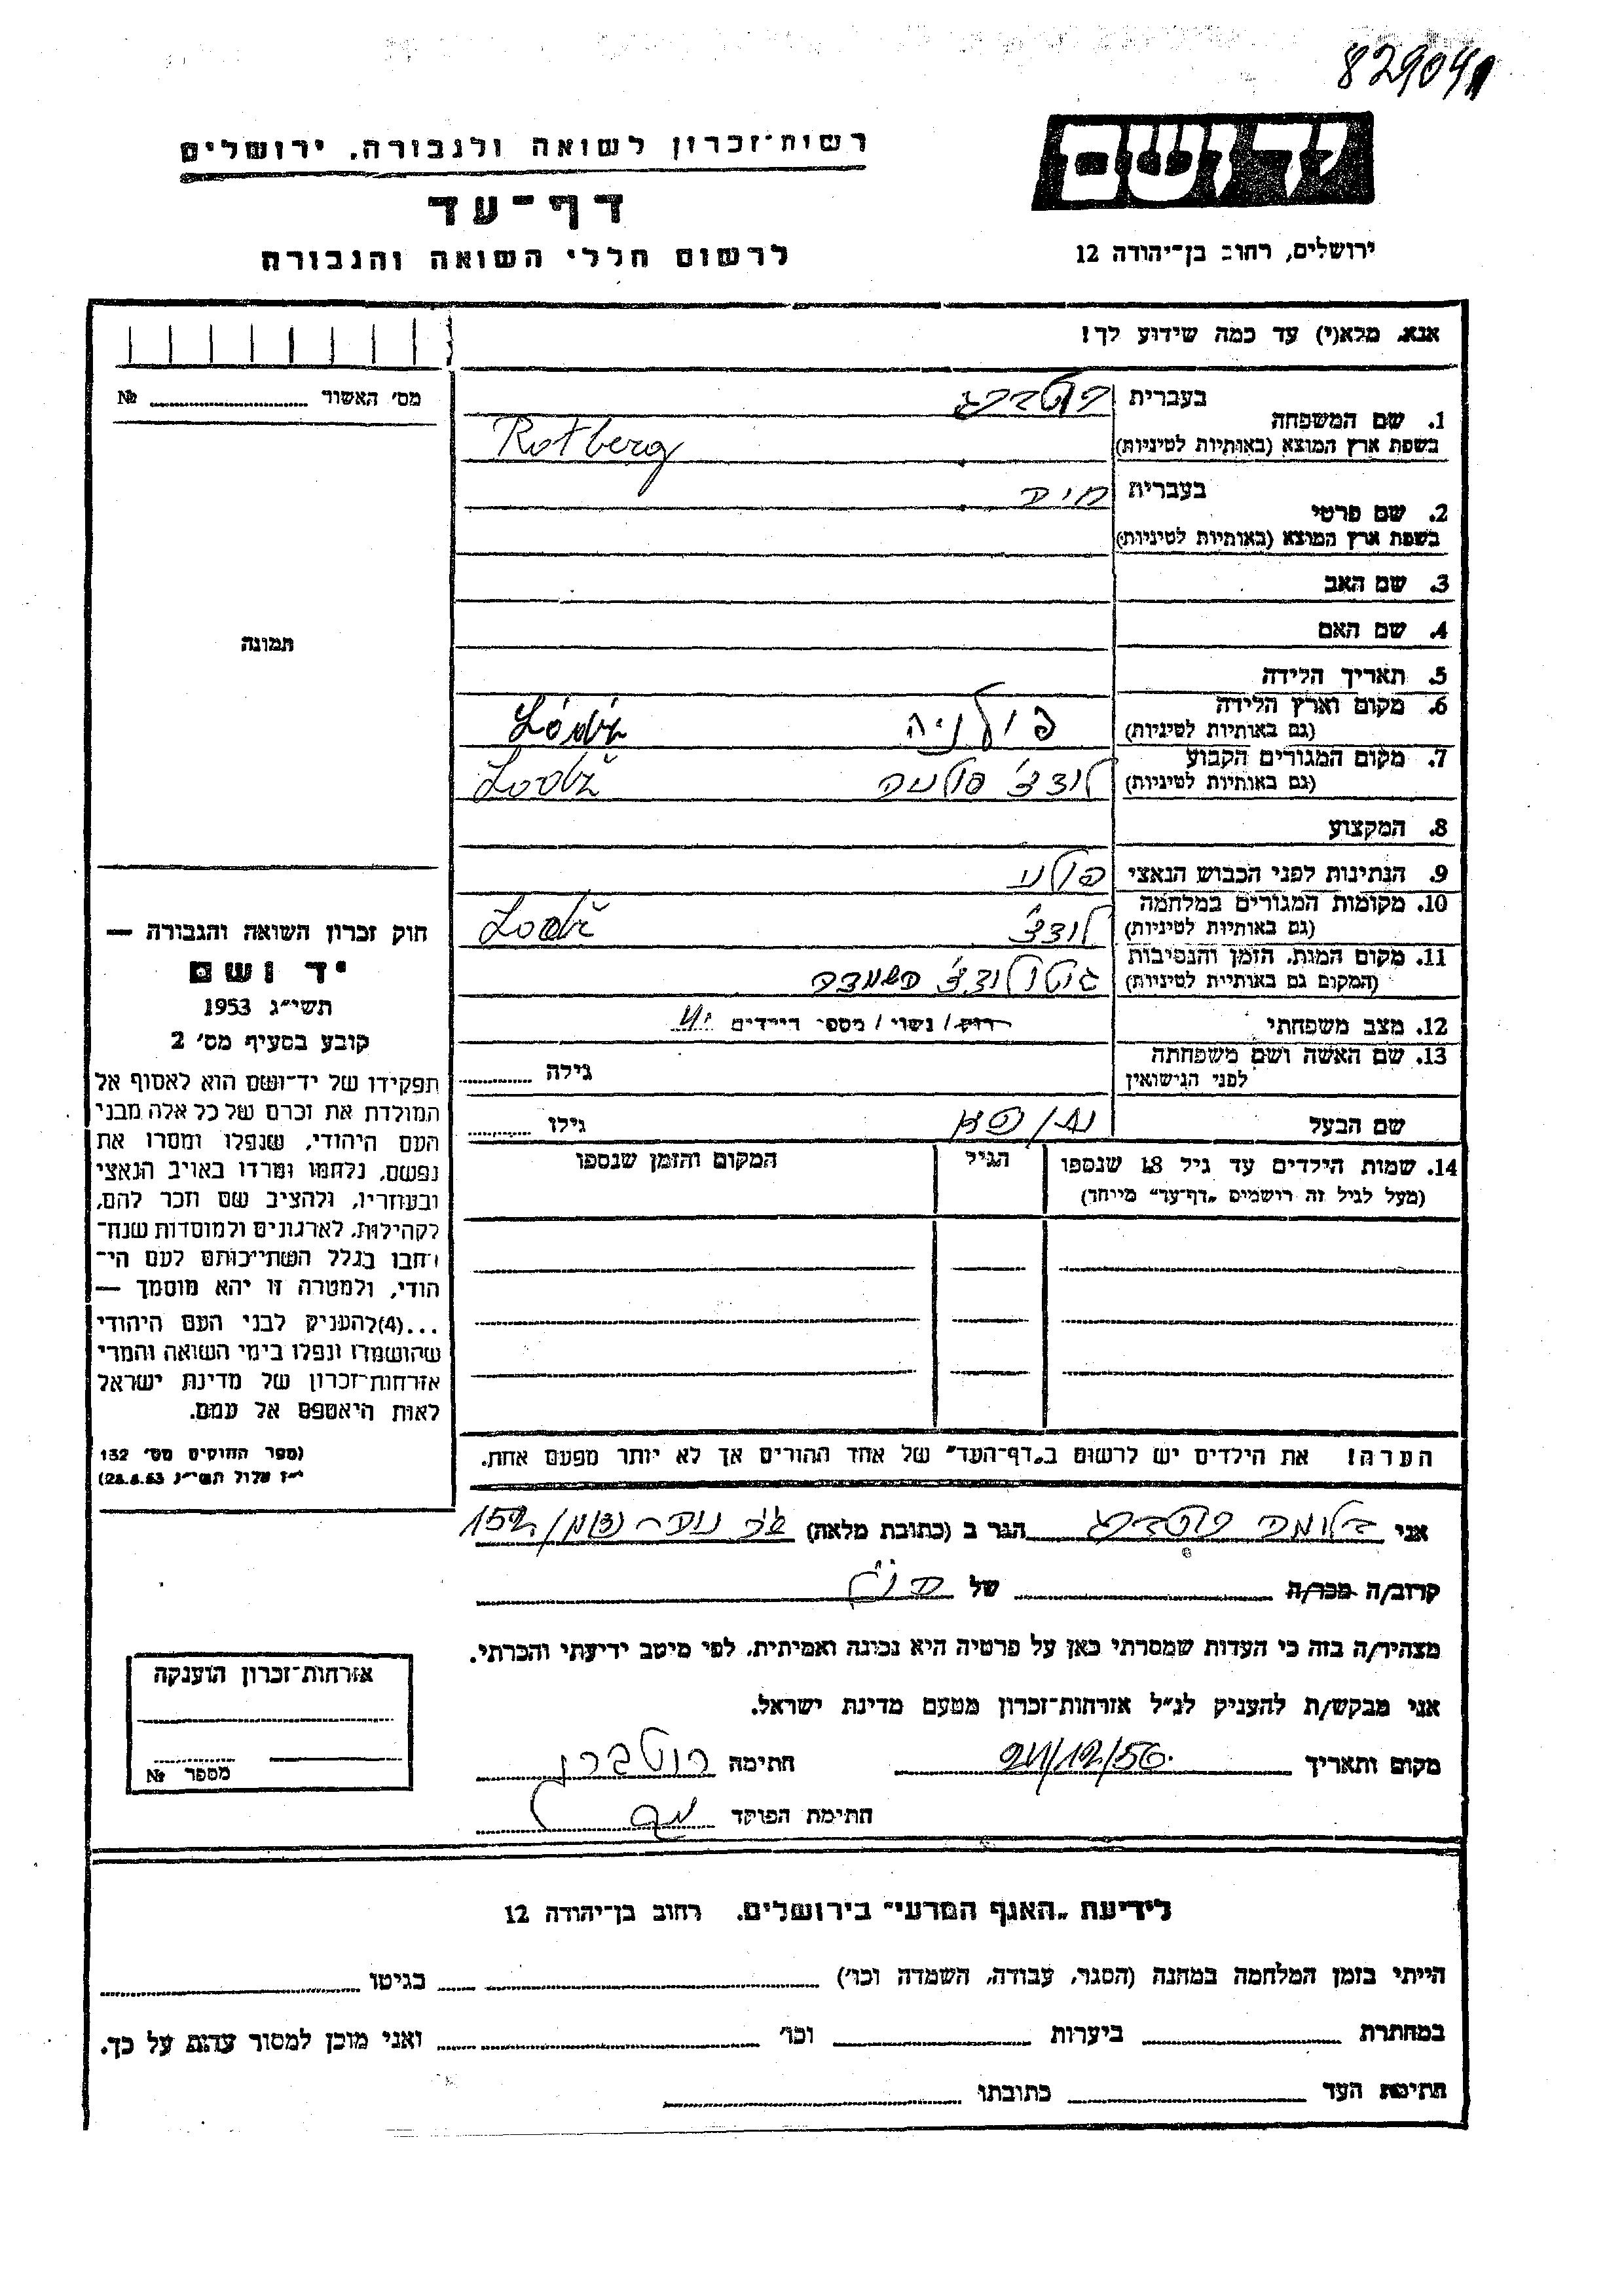 829041
יד ושם
ירושלים, רחוב בן־יהודה 12
רשות־זכרון לשואה ולגבורה. ירושלים
דף־עד
לרשום חללי השואה והגבורה
אנא. מלא(י) עד כמה שידוע לך!
מס׳ האשור № 
1. שם המשפחה
בעברית רוטברג
בשפת ארץ המוצא (באותיות לטיניות) Rotberg
2. שם פרטי
בעברית
בשפת ארץ המוצא (באותיות לטיניות)
3. שם האב
4. שם האם
5. תאריך הלידה
6. מקום וארץ הלידה
(גם באותיות לטיניות) פולניה Łódź
7. מקום המגורים הקבוע
(גם באותיות לטיניות) לודז׳ פולניה Lodź
8. המקצוע
9. הנתינות לפני הכבוש הנאצי פולני
10. מקומות המגורים במלחמה
(גם באותיות לטיניות) לודז׳ Lodź
11. מקום המות. הזמן והנסיבות
(המקום גם באותיות לטיניות) גיטו לודז׳
12. מצב משפחתי רוק / נשוי / מספר הילדים
13. שם האשה ושם משפחתה
לפני הנישואין גילה
שם הבעל גילו
14. שמות הילדים עד גיל 18 שנספו
(מעל לגיל זה רושמים „דף־עד״ מיוחד)
הגיל
המקום והזמן שנספו
הערה! את הילדים יש לרשום ב„דף־העד״ של אחד ההורים אך לא יותר מפעם אחת.
תמונה
חוק זכרון השואה והגבורה —
יד ושם
תשי״ג 1953
קובע בסעיף מס׳ 2
תפקידו של יד־ושם הוא לאסוף אל
המולדת את זכרם של כל אלה מבני
העם היהודי, שנפלו ומסרו את
נפשם, נלחמו ומרדו באויב הנאצי
ובעוזריו, ולהציב שם וזכר להם,
לקהילות, לארגונים ולמוסדות שנח־
רבו בגלל השתייכותם לעם הי־
הודי, ולמטרה זו יהא מוסמך —
...(4)להעניק לבני העם היהודי
שהושמדו ונפלו בימי השואה והמרי
אזרחות־זכרון של מדינת ישראל
לאות היאספם אל עמם.
(ספר החוקים מס׳ 132
י״ז אלול תשי״ג 28.8.53)
אני רוטברג הגר ב (כתובת מלאה) 152
קרוב/ה מכר/ה של
מצהיר/ה בזה כי העדות שמסרתי כאן על פרטיה היא נכונה ואמיתית. לפי מיטב ידיעתי והכרתי.
אני מבקש/ת להעניק לנ״ל אזרחות־זכרון מטעם מדינת ישראל.
מקום ותאריך 24/12/56 חתימה
חתימת הפוקד
אזרחות־זכרון הוענקה
מספר №
לידיעת „האגף המדעי״ בירושלים. רחוב בן־יהודה 12
הייתי בזמן המלחמה במחנה (הסגר, עבודה, השמדה וכו׳) בגיטו
במחתרת ביערות וכו׳ ואני מוכן למסור עדות על כך.
חתימת העד כתובתו